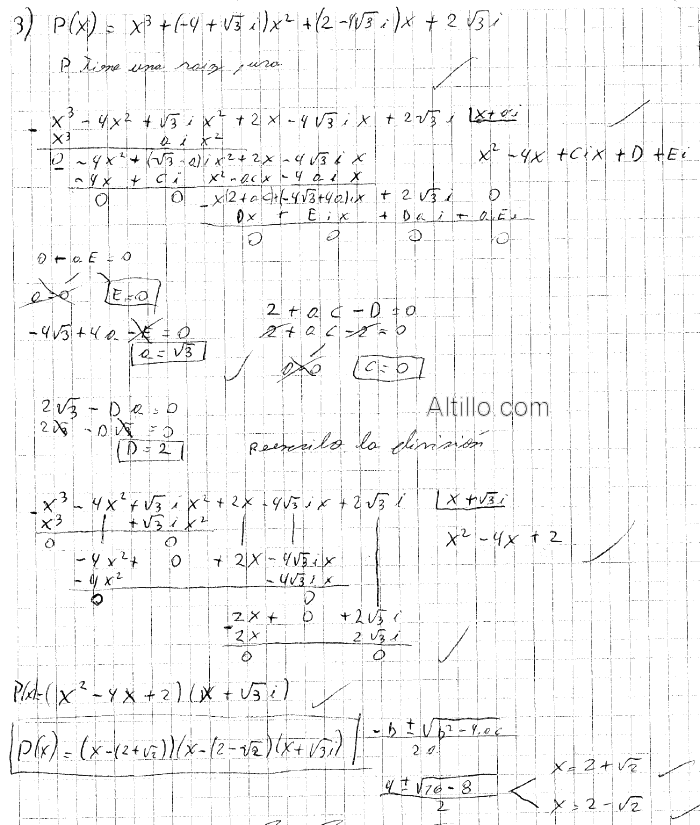 3) P(x) = x³ + (-4 + √3 i) x² + (2 - 4√3 i) x + 2√3 i
P tiene una raiz pura
- x³ - 4x² + √3 i x² + 2x - 4√3 i x + 2√3 i | x + ai
x³ a i x²
x² - 4x + Cix + D + Ei
0 - 4x² + (√3 - a) i x² + 2x - 4√3 i x
- 4x + C i x² - acx - 4 a i x
0 0 - x(2 + ac) + (-4√3 + 4a) ix + 2√3 i 0
Dx + E i x + D a i + a E i
0 0 0 0
0 + a E = 0
a = 0 E = 0
-4√3 + 4a - E = 0
a = √3
2 + a C - D = 0
2 + a C - 2 = 0
C = 0
2√3 - D a = 0
2√3 - D√3 = 0
D = 2
Altillo.com
Reescribo la división
- x³ - 4x² + √3 i x² + 2x - 4√3 i x + 2√3 i | x + √3 i
x³ + √3 i x²
x² - 4x + 2
0 0
- 4x² + 0 + 2x - 4√3 i x
- 4x² - 4√3 i x
0 0
- 2x + 0 + 2√3 i
2x 2√3 i
0 0
P(x) = (x² - 4x + 2) (x + √3 i)
P(x) = (x - (2 + √2)) (x - (2 - √2) (x + √3 i)
-b ± √b² - 4.ac
2a
4 ± √16 - 8
2
x = 2 + √2
x = 2 - √2